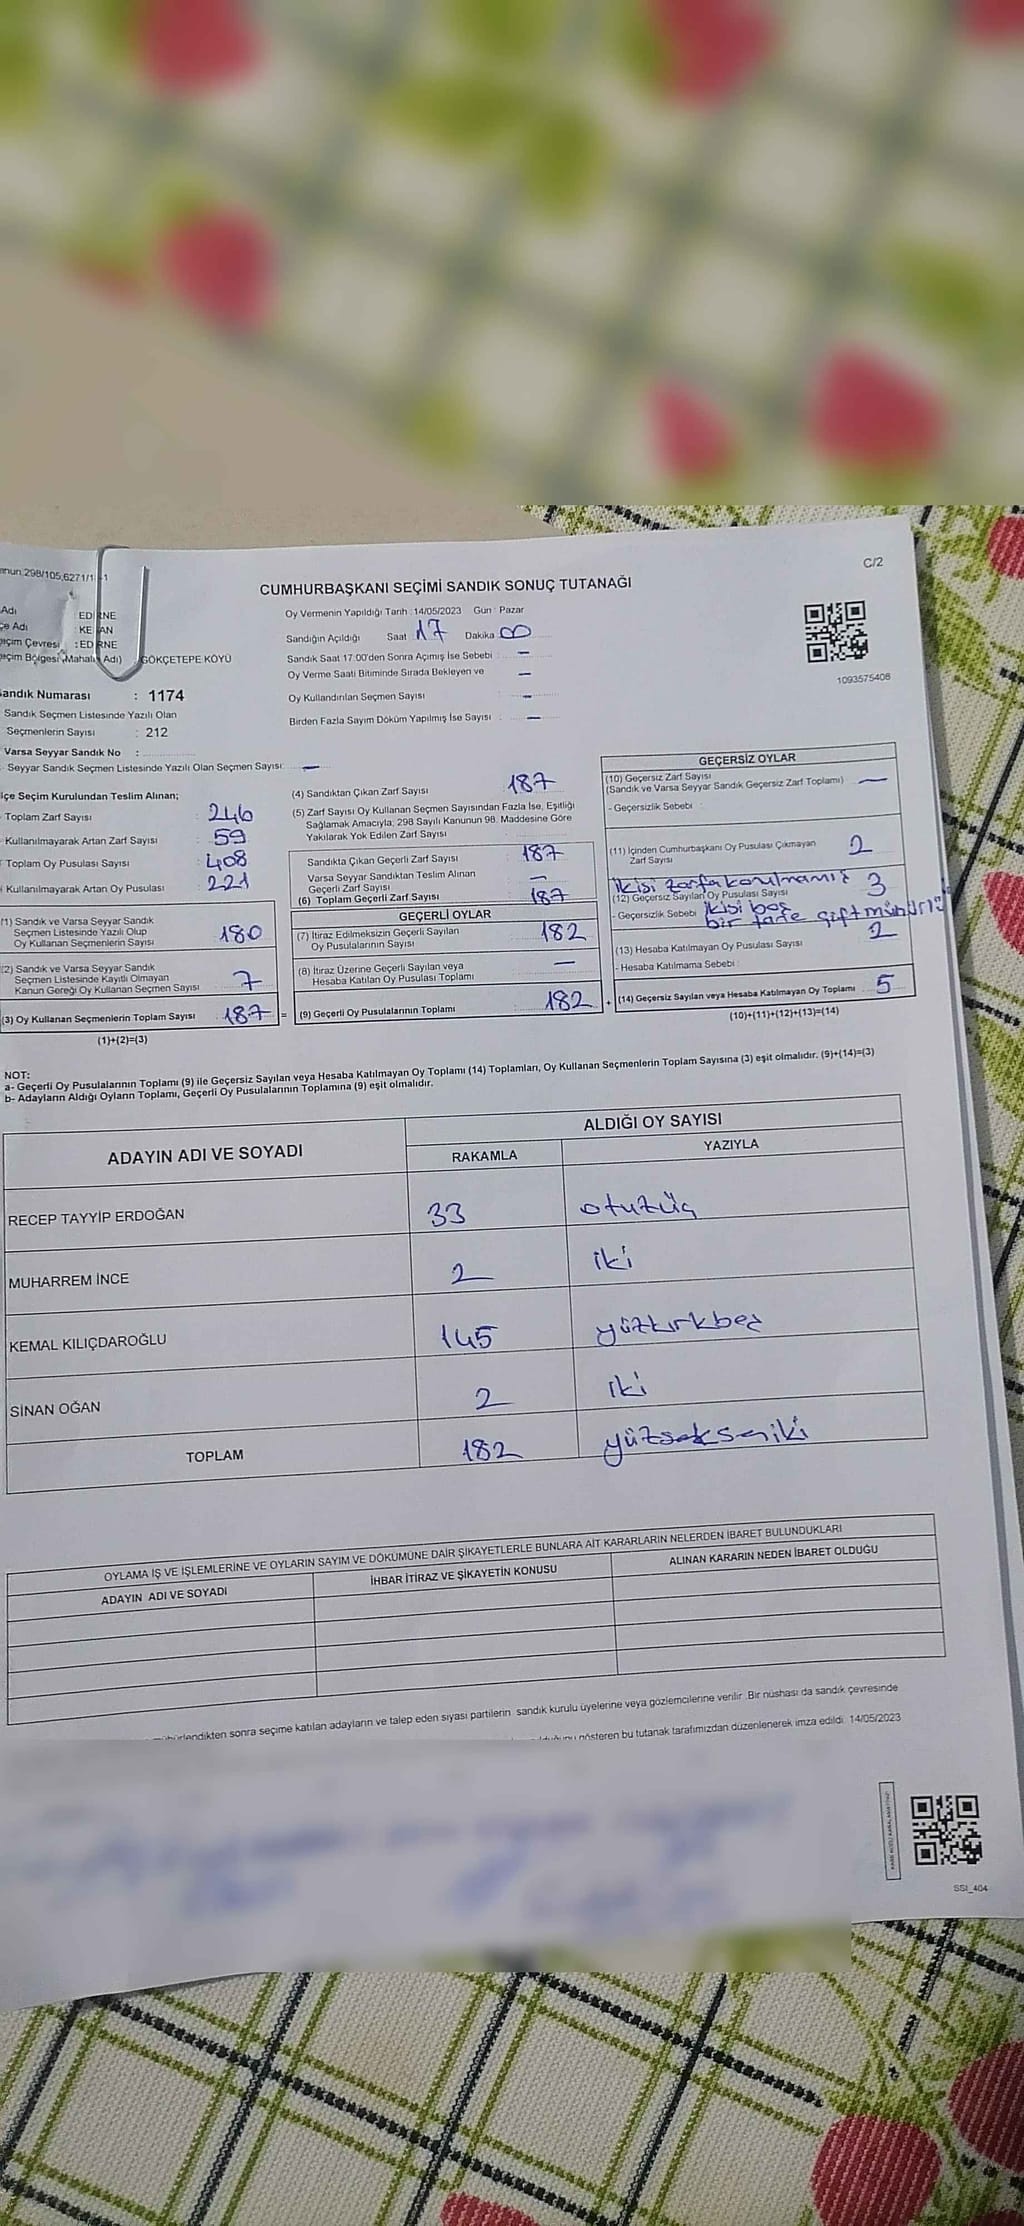 C/2
CUMHURBAŞKANI SEÇİMİ SANDIK SONUÇ TUTANAĞI
298/105,6271/1
Adı EDİRNE
Adı KEŞAN
Seçim Çevresi : EDİRNE
Seçim Bölgesi (Mahalle Adı) GÖKÇETEPE KÖYÜ
Sandık Numarası : 1174
Sandık Seçmen Listesinde Yazılı Olan
Seçmenlerin Sayısı : 212
Varsa Seyyar Sandık No :
Seyyar Sandık Seçmen Listesinde Yazılı Olan Seçmen Sayısı: —
Oy Vermenin Yapıldığı Tarih :14/05/2023 Gün : Pazar
Sandığın Açıldığı Saat 17 Dakika 00
Sandık Saat 17:00'den Sonra Açımış İse Sebebi : —
Oy Verme Saati Bitiminde Sırada Bekleyen ve —
Oy Kullandırılan Seçmen Sayısı : —
Birden Fazla Sayım Döküm Yapılmış İse Sayısı : —
1093575408
İlçe Seçim Kurulundan Teslim Alınan;
Toplam Zarf Sayısı : 246
Kullanılmayarak Artan Zarf Sayısı : 59
Toplam Oy Pusulası Sayısı : 408
Kullanılmayarak Artan Oy Pusulası : 221
(1) Sandık ve Varsa Seyyar Sandık
Seçmen Listesinde Yazılı Olup
Oy Kullanan Seçmenlerin Sayısı 180
(2) Sandık ve Varsa Seyyar Sandık
Seçmen Listesinde Kayıtlı Olmayan
Kanun Gereği Oy Kullanan Seçmen Sayısı 7
(3) Oy Kullanan Seçmenlerin Toplam Sayısı : 187 =
(1)+(2)=(3)
(4) Sandıktan Çıkan Zarf Sayısı : 187
(5) Zarf Sayısı Oy Kullanan Seçmen Sayısından Fazla İse, Eşitliği
Sağlamak Amacıyla; 298 Sayılı Kanunun 98. Maddesine Göre
Yakılarak Yok Edilen Zarf Sayısı
Sandıkta Çıkan Geçerli Zarf Sayısı : 187
Varsa Seyyar Sandıktan Teslim Alınan
Geçerli Zarf Sayısı —
(6) Toplam Geçerli Zarf Sayısı : 187
GEÇERLİ OYLAR
(7) İtiraz Edilmeksizin Geçerli Sayılan
Oy Pusulalarının Sayısı 182
(8) İtiraz Üzerine Geçerli Sayılan veya
Hesaba Katılan Oy Pusulası Toplamı —
(9) Geçerli Oy Pusulalarının Toplamı : 182 +
GEÇERSİZ OYLAR
(10) Geçersiz Zarf Sayısı
(Sandık ve Varsa Seyyar Sandık Geçersiz Zarf Toplamı) —
- Geçersizlik Sebebi :
(11) İçinden Cumhurbaşkanı Oy Pusulası Çıkmayan
Zarf Sayısı 2
ikisi zarfa konulmamış
(12) Geçersiz Sayılan Oy Pusulası Sayısı 3
- Geçersizlik Sebebi ikisi boş
bir tane çift mühürlü
(13) Hesaba Katılmayan Oy Pusulası Sayısı 2
- Hesaba Katılmama Sebebi :
(14) Geçersiz Sayılan veya Hesaba Katılmayan Oy Toplamı 5
(10)+(11)+(12)+(13)=(14)
NOT:
a- Geçerli Oy Pusulalarının Toplamı (9) ile Geçersiz Sayılan veya Hesaba Katılmayan Oy Toplamı (14) Toplamları, Oy Kullanan Seçmenlerin Toplam Sayısına (3) eşit olmalıdır. (9)+(14)=(3)
b- Adayların Aldığı Oyların Toplamı, Geçerli Oy Pusulalarının Toplamına (9) eşit olmalıdır.
ADAYIN ADI VE SOYADI ALDIĞI OY SAYISI
RAKAMLA YAZIYLA
RECEP TAYYİP ERDOĞAN 33 otuzüç
MUHARREM İNCE 2 iki
KEMAL KILIÇDAROĞLU 145 yüzkırkbeş
SİNAN OĞAN 2 iki
TOPLAM 182 yüzsekseniki
OYLAMA İŞ VE İŞLEMLERİNE VE OYLARIN SAYIM VE DÖKÜMÜNE DAİR ŞİKAYETLERLE BUNLARA AİT KARARLARIN NELERDEN İBARET BULUNDUKLARI
ADAYIN ADI VE SOYADI İHBAR İTİRAZ VE ŞİKAYETİN KONUSU ALINAN KARARIN NEDEN İBARET OLDUĞU
sonra seçime katılan adayların ve talep eden siyasi partilerin sandık kurulu üyelerine veya gözlemcilerine verilir .Bir nüshası da sandık çevresinde
gösteren bu tutanak tarafımızdan düzenlenerek imza edildi. 14/05/2023
SSI_404